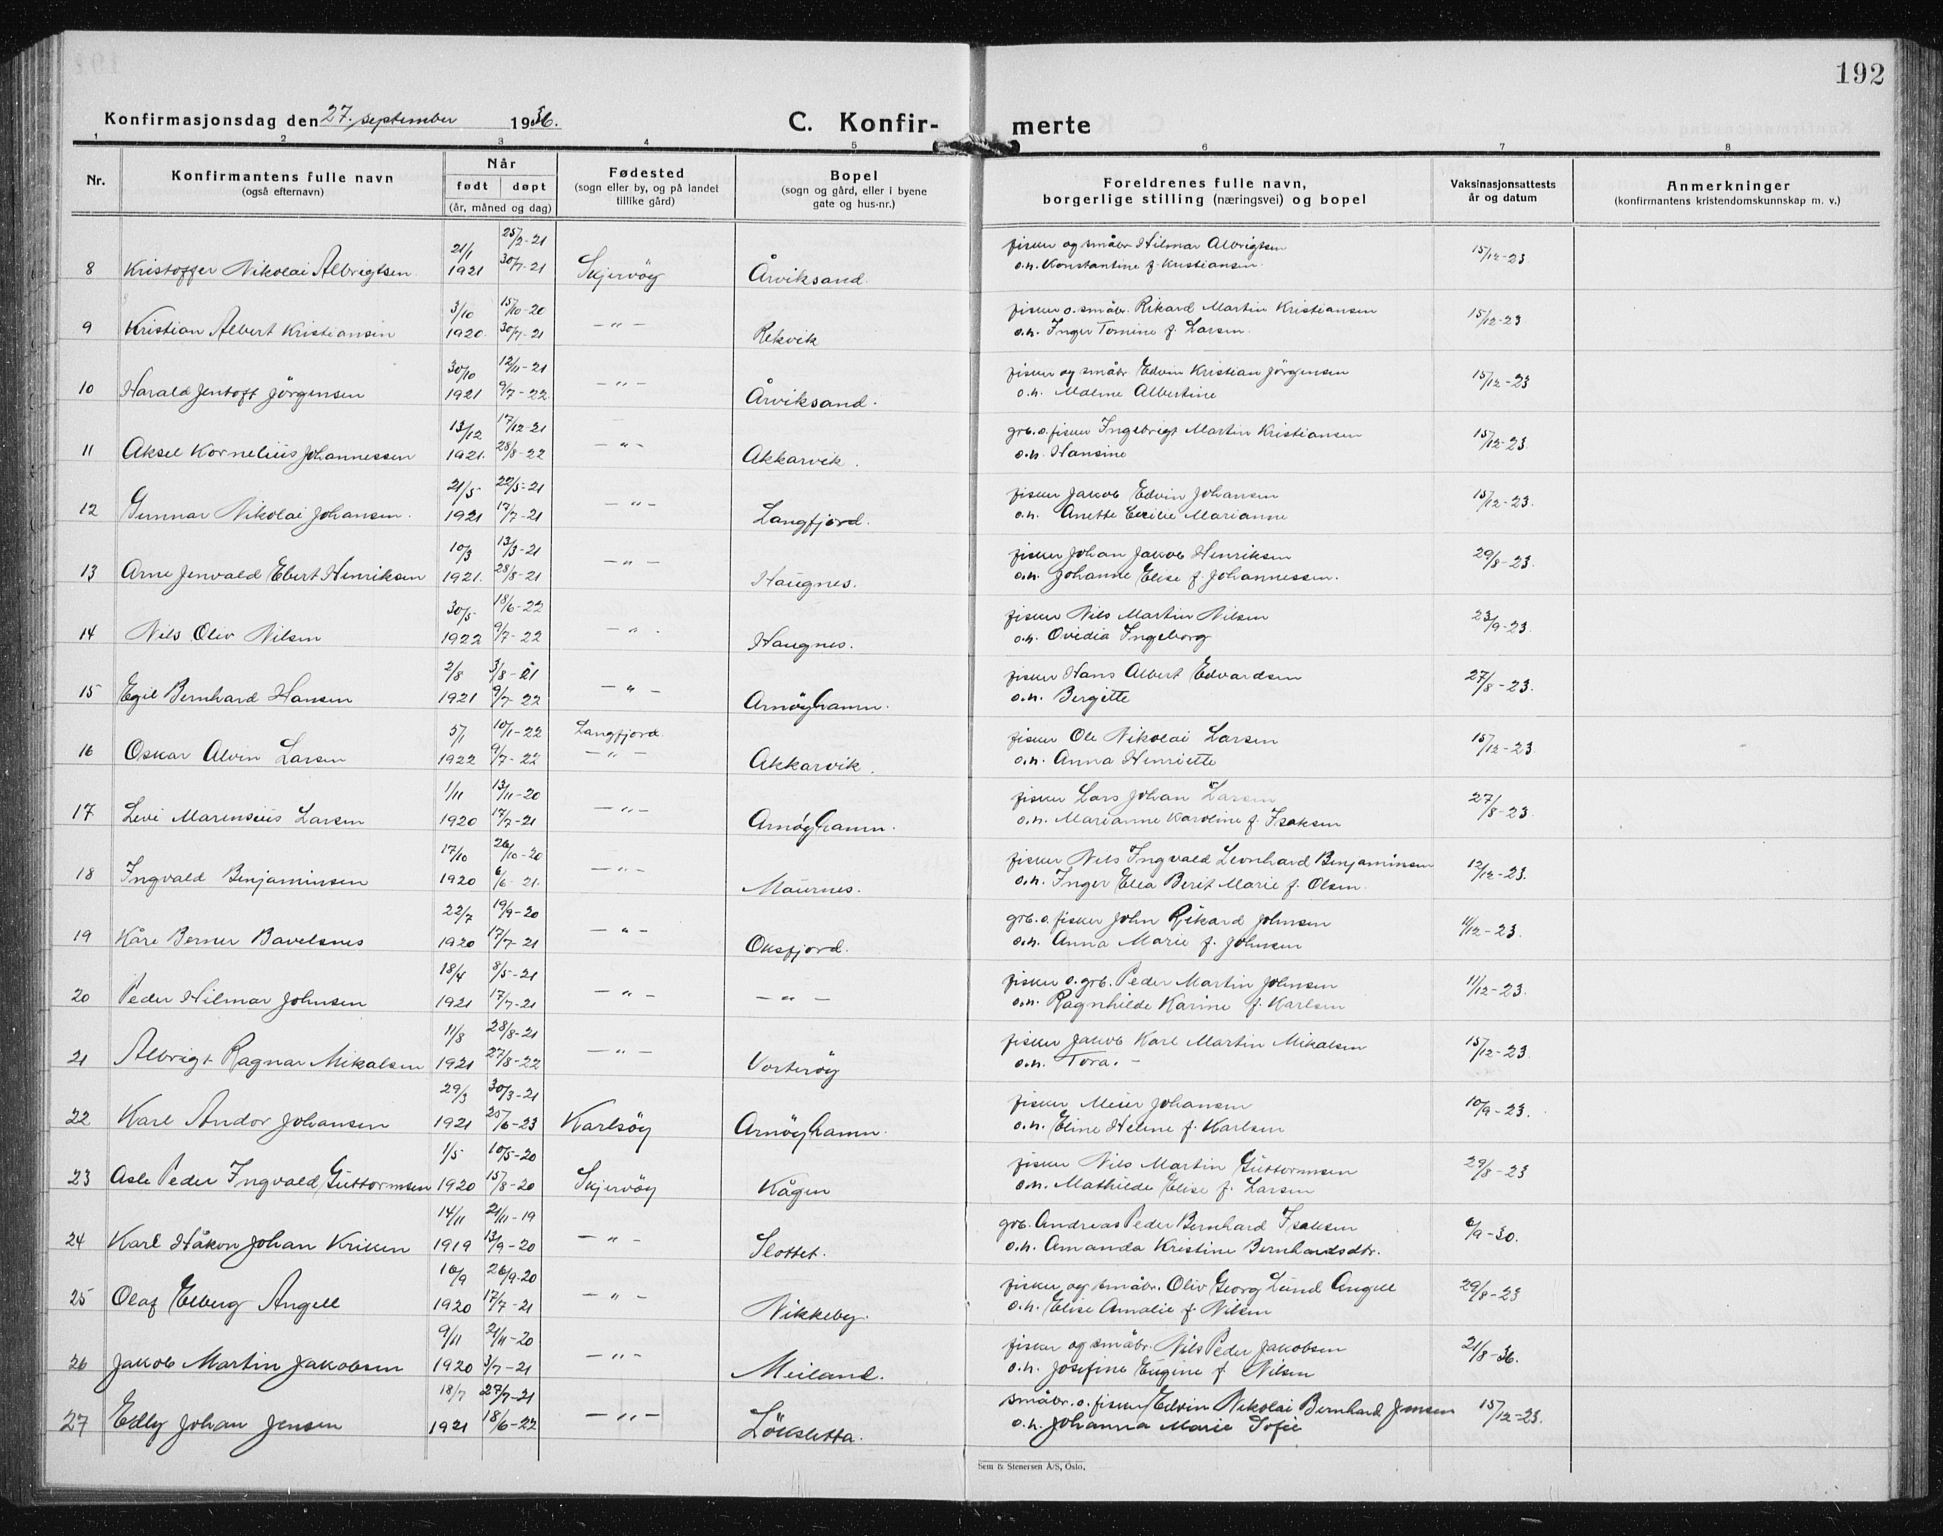 192
Konfirmasjonsdag den 27. september 1936.
C. Konfirmerte
1 2 3 4 5 6 7 8
Nr.
Konfirmantens fulle navn
(også efternavn)
Når
født døpt
(år, måned og dag)
Fødested
(sogn eller by, og på landet
tillike gård)
Bopel
(sogn og gård, eller i byene
gate og hus-nr.)
Foreldrenes fulle navn,
borgerlige stilling (næringsvei) og bopel
Vaksinasjonsattests
år og datum
Anmerkninger
(konfirmantens kristendomskunnskap m. v.)
21/1 25/2-21 fisker og småbr. Hilmar Albrigtsen
8 Kristoffer Nikolai Albrigtsen 1921 30/7-21 Skjervöy Årviksand. o.h. Konstantine f. Kristiansen. 15/12-23
3/10 15/10-20 fisker o. småbr. Rikard Martin Kristiansen
9 Kristian Albert Kristiansen 1920. 30/7-21 -"- Rekvik o.h. Inger Tomine f. Larsen. 15/12-23
30/10 12/11-21 fisker og småbr. Edvin Kristian Jörgensen
10 Harald Jentoft Jörgensen 1921 9/7-22. -"- Årviksand. o.h. Malene Albertine 15/12-23
13/12 17/12-21 grb. o. fisker Ingebrigt Martin Kristiansen
11 Aksel Kornelius Johannessen 1921. 28/8-22 -"- Akkarvik. o.h. Hansine 15/12-23.
21/5 22/5-21 fisker Jakob Edvin Johansen
12 Gunnar Nikolai Johansen. 1921 17/7-21 -"- Langfjord. o.h. Anette Cecilie Marianne 15/12-23.
10/3 13/3-21 fisker Johan Jakob Henriksen
13 Arne Jenvald Ebert Henriksen 1921. 28/8-21 -"- Haugnes. o.h. Johanne Elise f. Johannessen. 29/8-23.
30/5 18/6-22 fisker Nils Martin Nilsen
14 Nils Oliv Nilsen 1922 9/7-22 -"- Haugnes. o.h. Ovidia Ingeborg 23/9-23.
2/8 3/8-21 fisker Hans Albert Edvardsen
15 Egil Bernhard Hansen 1921 9/7-22 -"- Arnöyhamn. o.h. Bergitte 27/8-23.
5/1 10/1-22 Langfjord. fisker Ole Nikolai Larsen
16 Oskar Alvin Larsen 1922 9/7-22 -"- Akkarvik. o.h. Anna Henriette 15/12-23.
1/11 13/11-20 fisker Lars Johan Larsen
17 Levi Marensius Larsen 1920 17/7-21 -"- Arnöyhamn. o.h. Marianne Karoline f. Isaksen 27/8-23.
17/10 26/10-20 fisker Nils Ingvald Leonhard Benjaminsen
18 Ingvald Benjaminsen 1920 6/6-21. -"- Maurnes. o.h. Inger Elea Berit Marie f. Olsen. 12/12-23.
22/7 19/9-20 grb. o. fisker John Rikard Johnsen
19 Kåre Berner Bavelsnes 1920 17/7-21 -"- Oksfjord. o.h. Anna Marie f. Johnsen 11/12-23.
18/4 8/5-21 fisker o. grb. Peder Martin Johnsen
20 Peder Hilmar Johnsen 1921 17/7-21 -"- -"- o.h. Ragnhilde Karine f. Karlsen 11/12-23.
11/8 28/8-21 fisker Jakob Karl Martin Mikalsen
21 Albrigt Ragnar Mikalsen 1921 27/8-22 -"- Vorteröy o.h. Tora. - 15/12-23.
29/3 30/3-21 fisker Meier Johansen
22 Karl Andor Johansen 1921 25/6-23 Karlsöy Arnöyhamn. o.h. Eline Helene f. Karlsen 10/9-23.
1/5 10/5-20 fisker Nils Martin Guttormsen
23 Asle Peder Ingvald Guttormsen 1920 15/8-20 Skjervöy Kågen o.h. Mathilde Elise f. Larsen 29/8-23
14/11 21/11-19 grb. Andreas Peder Bernhard Isaksen
24 Karl Håkon Johan Kriken 1919 13/9-20 -"- Slottet. o.h. Amanda Kristine Bernhardsdtr. 6/9-30.
16/9 26/9-20 fisker og småbr. Oliv Georg Lund Angell
25 Olaf Elberg Angell 1920 17/7-21 -"- Nikkeby. o.h. Elise Amalie f. Nilsen 29/8-23
9/11 21/11-20 fisker og småbr. Nils Peder Jakobsen
26 Jakob Martin Jakobsen 1920 3/7-21 -"- Meiland. o.h. Josefine Eugine f. Nilsen 21/8-36.
18/7 27/7-21 småbr. o. fisker Edvin Nikolai Bernhard Jensen
27 Edly Johan Jensen 1921 18/6-22 -"- Löksletta. o.h. Johanna Marie Sofie 15/12-23.
Sem & Stenersen A/S, Oslo.